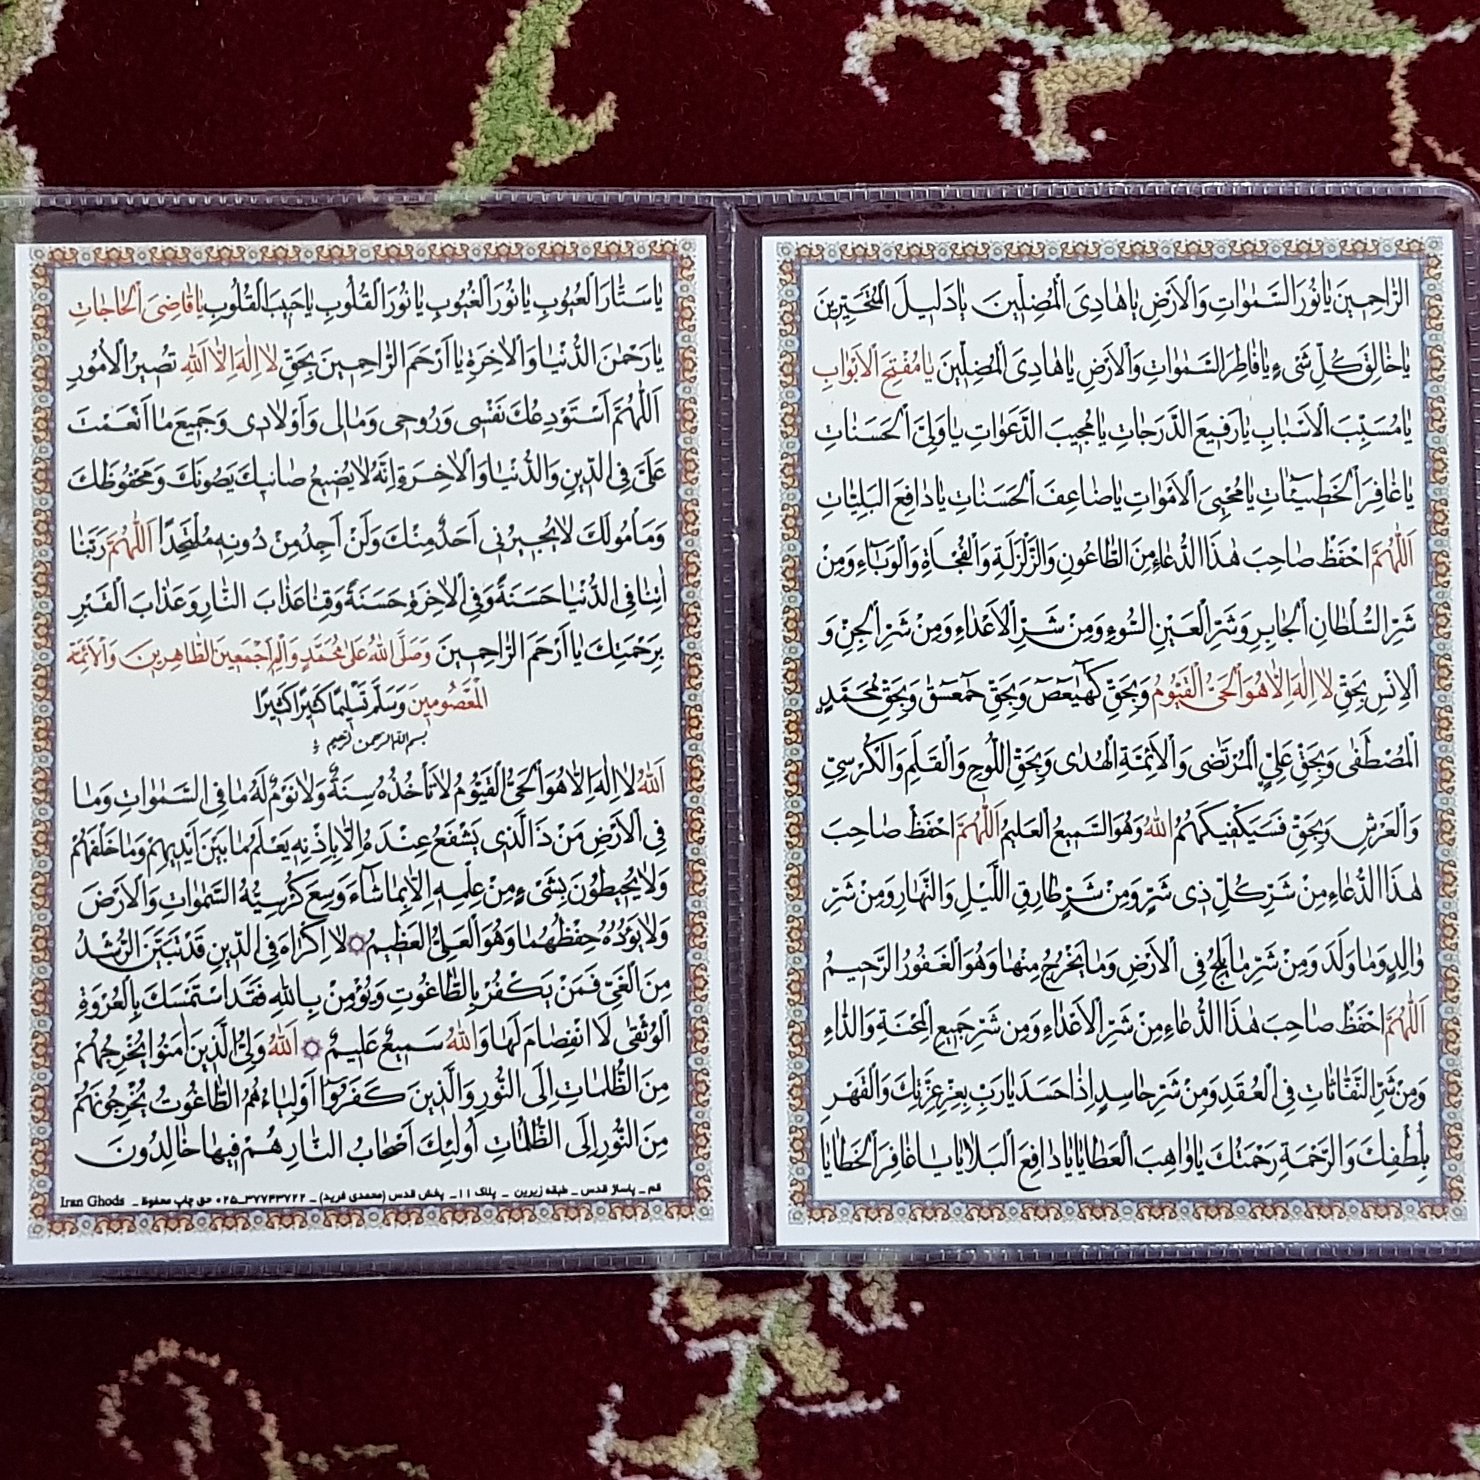 الرَّاحِمِينَ يَا نُورَ السَّمٰوَاتِ وَالْاَرْضِ يَا هَادِيَ الْمُضِلِّينَ يَا دَلِيلَ الْمُتَحَيِّرِينَ
يَا خَالِقَ كُلِّ شَيْءٍ يَا فَاطِرَ السَّمٰوَاتِ وَالْاَرْضِ يَا هَادِيَ الْمُضِلِّينَ يَا مُفَتِّحَ الْاَبْوَابِ
يَا مُسَبِّبَ الْاَسْبَابِ يَا رَفِيعَ الدَّرَجَاتِ يَا مُجِيبَ الدَّعَوَاتِ يَا وَلِيَّ الْحَسَنَاتِ
يَا غَافِرَ الْخَطِيـئَاتِ يَا مُحْيِيَ الْاَمْوَاتِ يَا ضَاعِفَ الْحَسَنَاتِ يَا دَافِعَ الْبَلِيَّاتِ
اَللّٰهُمَّ احْفَظْ صَاحِبَ هٰذَا الدُّعَاءِ مِنَ الطَّاعُونِ وَالزَّلْزَلَةِ وَالْفُجْاَةِ وَالْوَبَاءِ وَمِنْ
شَرِّ السُّلْطَانِ الْجَابِرِ وَشَرِّ الْعَيْنِ السُّوءِ وَمِنْ شَرِّ الْاَعْدَاءِ وَمِنْ شَرِّ الْجِنِّ وَ
الْاِنْسِ بِحَقِّ لَا اِلٰهَ اِلَّا هُوَ الْحَيُّ الْقَيُّومُ وَبِحَقِّ كٓهٰيٰعٓصٓ وَبِحَقِّ حٰمٓعٓسٓقٓ وَبِحَقِّ مُحَمَّدٍ
الْمُصْطَفٰى وَبِحَقِّ عَلِيٍّ الْمُرْتَضٰى وَالْاَئِمَّةِ الْهُدٰى وَبِحَقِّ اللَّوْحِ وَالْقَلَمِ وَالْكُرْسِيِّ
وَالْعَرْشِ وَبِحَقِّ فَسَيَكْفِيكَهُمُ اللّٰهُ وَهُوَ السَّمِيعُ الْعَلِيمُ اَللّٰهُمَّ احْفَظْ صَاحِبَ
هٰذَا الدُّعَاءِ مِنْ شَرِّ كُلِّ ذِي شَرٍّ وَمِنْ شَرِّ طَارِقِ اللَّيْلِ وَالنَّهَارِ وَمِنْ شَرِّ
وَالِدٍ وَمَا وَلَدَ وَمِنْ شَرِّ مَا يَلِجُ فِي الْاَرْضِ وَمَا يَخْرُجُ مِنْهَا وَهُوَ الْغَفُورُ الرَّحِيمُ
اَللّٰهُمَّ احْفَظْ صَاحِبَ هٰذَا الدُّعَاءِ مِنْ شَرِّ الْاَعْدَاءِ وَمِنْ شَرِّ جَمِيعِ الْمِحْنَةِ وَالدَّاءِ
وَمِنْ شَرِّ النَّفَّاثَاتِ فِي الْعُقَدِ وَمِنْ شَرِّ حَاسِدٍ اِذَا حَسَدَ يَا رَبِّ بِعِزِّ عِزَّتِكَ وَالْقَهْرِ
بِلُطْفِكَ وَالرَّحْمَةِ رَحْمَتُكَ يَا وَاهِبَ الْعَطَايَا يَا دَافِعَ الْبَلَايَا يَا غَافِرَ الْخَطَايَا
يَا سَتَّارَ الْعُيُوبِ يَا نُورَ الْغُيُوبِ يَا نُورَ الْقُلُوبِ يَا حَبِيبَ الْقُلُوبِ يَا قَاضِيَ الْحَاجَاتِ
يَا رَحْمٰنَ الدُّنْيَا وَالْاٰخِرَةِ يَا اَرْحَمَ الرَّاحِمِينَ بِحَقِّ لَا اِلٰهَ اِلَّا اللّٰهِ تَصِيرُ الْاُمُورِ
اَللّٰهُمَّ اَسْتَوْدِعُكَ نَفْسِي وَرُوحِي وَمَالِي وَاَوْلَادِي وَجَمِيعَ مَا اَنْعَمْتَ
عَلَيَّ فِي الدِّينِ وَالدُّنْيَا وَالْاٰخِرَةِ اِنَّهُ لَا يُضِيعُ صَانِيكَ يَصُونَكَ وَمَحْفُوظَكَ
وَمَاْمُولَكَ لَا يُجِيرُنِي اَحَدٌ مِنْكَ وَلَنْ اَجِدُ مِنْ دُونِهِ مُلْتَحَدًا اَللّٰهُمَّ رَبَّنَا
اٰتِنَا فِي الدُّنْيَا حَسَنَةً وَفِي الْاٰخِرَةِ حَسَنَةً وَقِنَا عَذَابَ النَّارِ وَعَذَابَ الْقَبْرِ
بِرَحْمَتِكَ يَا اَرْحَمَ الرَّاحِمِينَ وَصَلَّى اللّٰهُ عَلٰى مُحَمَّدٍ وَاٰلِهِ اَجْمَعِينَ الطَّاهِرِينَ وَالْاَئِمَّةِ
الْمَعْصُومِينَ وَسَلَّمَ تَسْلِيمًا كَثِيرًا كَثِيرًا
بسم الله الرحمن الرحيم
اَللّٰهُ لَا اِلٰهَ اِلَّا هُوَ الْحَيُّ الْقَيُّومُ لَا تَأْخُذُهُ سِنَةٌ وَلَا نَوْمٌ لَهُ مَا فِي السَّمٰوَاتِ وَمَا
فِي الْاَرْضِ مَنْ ذَا الَّذِي يَشْفَعُ عِنْدَهُ اِلَّا بِاِذْنِهِ يَعْلَمُ مَا بَيْنَ اَيْدِيهِمْ وَمَا خَلْفَهُمْ
وَلَا يُحِيطُونَ بِشَيْءٍ مِنْ عِلْمِهِ اِلَّا بِمَا شَاءَ وَسِعَ كُرْسِيُّهُ السَّمٰوَاتِ وَالْاَرْضَ
وَلَا يَؤُدُهُ حِفْظُهُمَا وَهُوَ الْعَلِيُّ الْعَظِيمُ لَا اِكْرَاهَ فِي الدِّينِ قَدْ تَبَيَّنَ الرُّشْدُ
مِنَ الْغَيِّ فَمَنْ يَكْفُرْ بِالطَّاغُوتِ وَيُؤْمِنْ بِاللّٰهِ فَقَدِ اسْتَمْسَكَ بِالْعُرْوَةِ
الْوُثْقٰى لَا انْفِصَامَ لَهَا وَاللّٰهُ سَمِيعٌ عَلِيمٌ اَللّٰهُ وَلِيُّ الَّذِينَ اٰمَنُوا يُخْرِجُهُمْ
مِنَ الظُّلُمَاتِ اِلَى النُّورِ وَالَّذِينَ كَفَرُوا اَوْلِيَاءُهُمُ الطَّاغُوتُ يُخْرِجُونَهُمْ
مِنَ النُّورِ اِلَى الظُّلُمَاتِ اُولٰئِكَ اَصْحَابُ النَّارِ هُمْ فِيهَا خَالِدُونَ
قم ـ پاساژ قدس ـ طبقه زیرین ـ پلاک ۱۱ـ پخش قدس (محمدی فرید) ـ ۳۷۷۴۳۷۲۲ـ۰۲۵ حق چاپ محفوظ ـ Iran Ghods